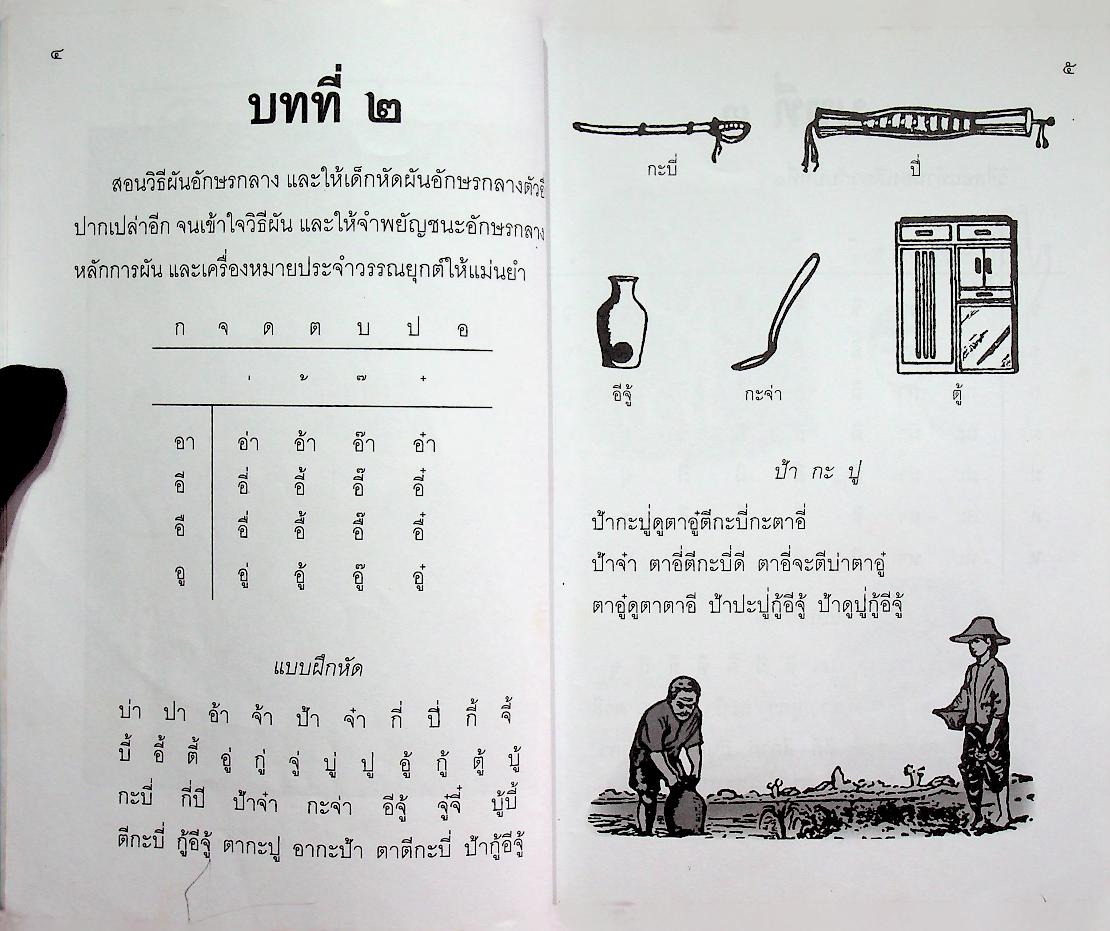 ๔
บทที่ ๒
สอนวิธีผันอักษรกลาง และให้เด็กหัดผันอักษรกลางตัวอื่
ปากเปล่าอีก จนเข้าใจวิธีผัน และให้จำพยัญชนะอักษรกลาง
หลักการผัน และเครื่องหมายประจำวรรณยุกต์ให้แม่นยำ
ก จ ด ต บ ป อ
่ ้ ๊ ๋
อา อ่า อ้า อ๊า อ๋า
อี อี่ อี้ อี๊ อี๋
อือ อื่ อื้ อื๊ อื๋
อู อู่ อู้ อู๊ อู๋
แบบฝึกหัด
บ่า ปา อ้า จ้า ป้า จ๋า กี่ ปี่ กี้ จี้
บี้ อี้ ตี้ อู่ กู่ จู่ บู่ ปู อู้ กู้ ตู้ บู้
กะบี่ กี่ปี ป้าจ๋า กะจ่า อีจู้ จู๋จี๋ บู้บี้
ตีกะบี่ กู้อีจู้ ตากะปู อากะป้า ตาตีกะบี่ ป้ากู้อีจู้
๕
กะบี่ ปี่
อีจู้ กะจ่า ตู้
ป้า กะ ปู
ป้ากะปู่ดูตาอู๋ตีกะบี่กะตาอี่
ป้าจ๋า ตาอี่ตีกะบี่ดี ตาอี่จะตีบ่าตาอู๋
ตาอู๋ดูตาตาอี ป้าปะปู่กู้อีจู้ ป้าดูปู่กู้อีจู้